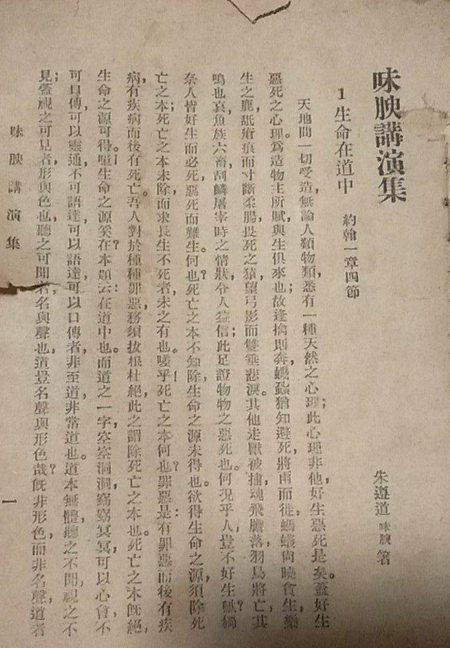 味腴講演集
1 生命在道中 約翰一章四節
朱遵道 味腴 箸
天地間一切受造，無論人類物類悉有一種天然之心理；此心理非他好生惡死是矣。蓋好生
惡死之心理。為造物主所賦與生俱來也；故逢擒則奔蟣蝨猶知避死將雨而徙螞蟻尚曉貪生。樂
生之鹿舐瘡痕而寸斷柔腸畏死之猿望弓影而雙垂悲淚。其他走獸被捕，魂飛膽落羽鳥將亡，其
鳴也哀魚族六畜刮鱗屠宰時之情狀令人益信；此足證物物之惡死也。何況乎人豈不好生
奈人皆好生而必死，惡死而難生。何也？死亡之本不知除生命之源未得也。欲得生命之源，須除死
亡之本；死亡之本未除，而求長生不死者，未之有也。嗟乎！死亡之本何也？罪惡是：有罪惡而後有疾
病，有疾病而後有死亡。吾人對於種種罪惡務須拔根杜絕，此之謂除死亡之本也。死亡之本既絕，
生命之源可得。噫！生命之源奚在？本題云：在道中也。而道之一字，空空洞洞，窈窈冥冥，可以心會，不
可口傳，可以靈通，不可語達；可以語達，可以口傳者非至道，非常道也。道本無體，聽之不聞，視之不
見；蓋視之可見者，形與色也；聽之可聞者，名與聲也。道豈名聲與形色哉？既非形色，而非名聲，道者
味腴講演集
一